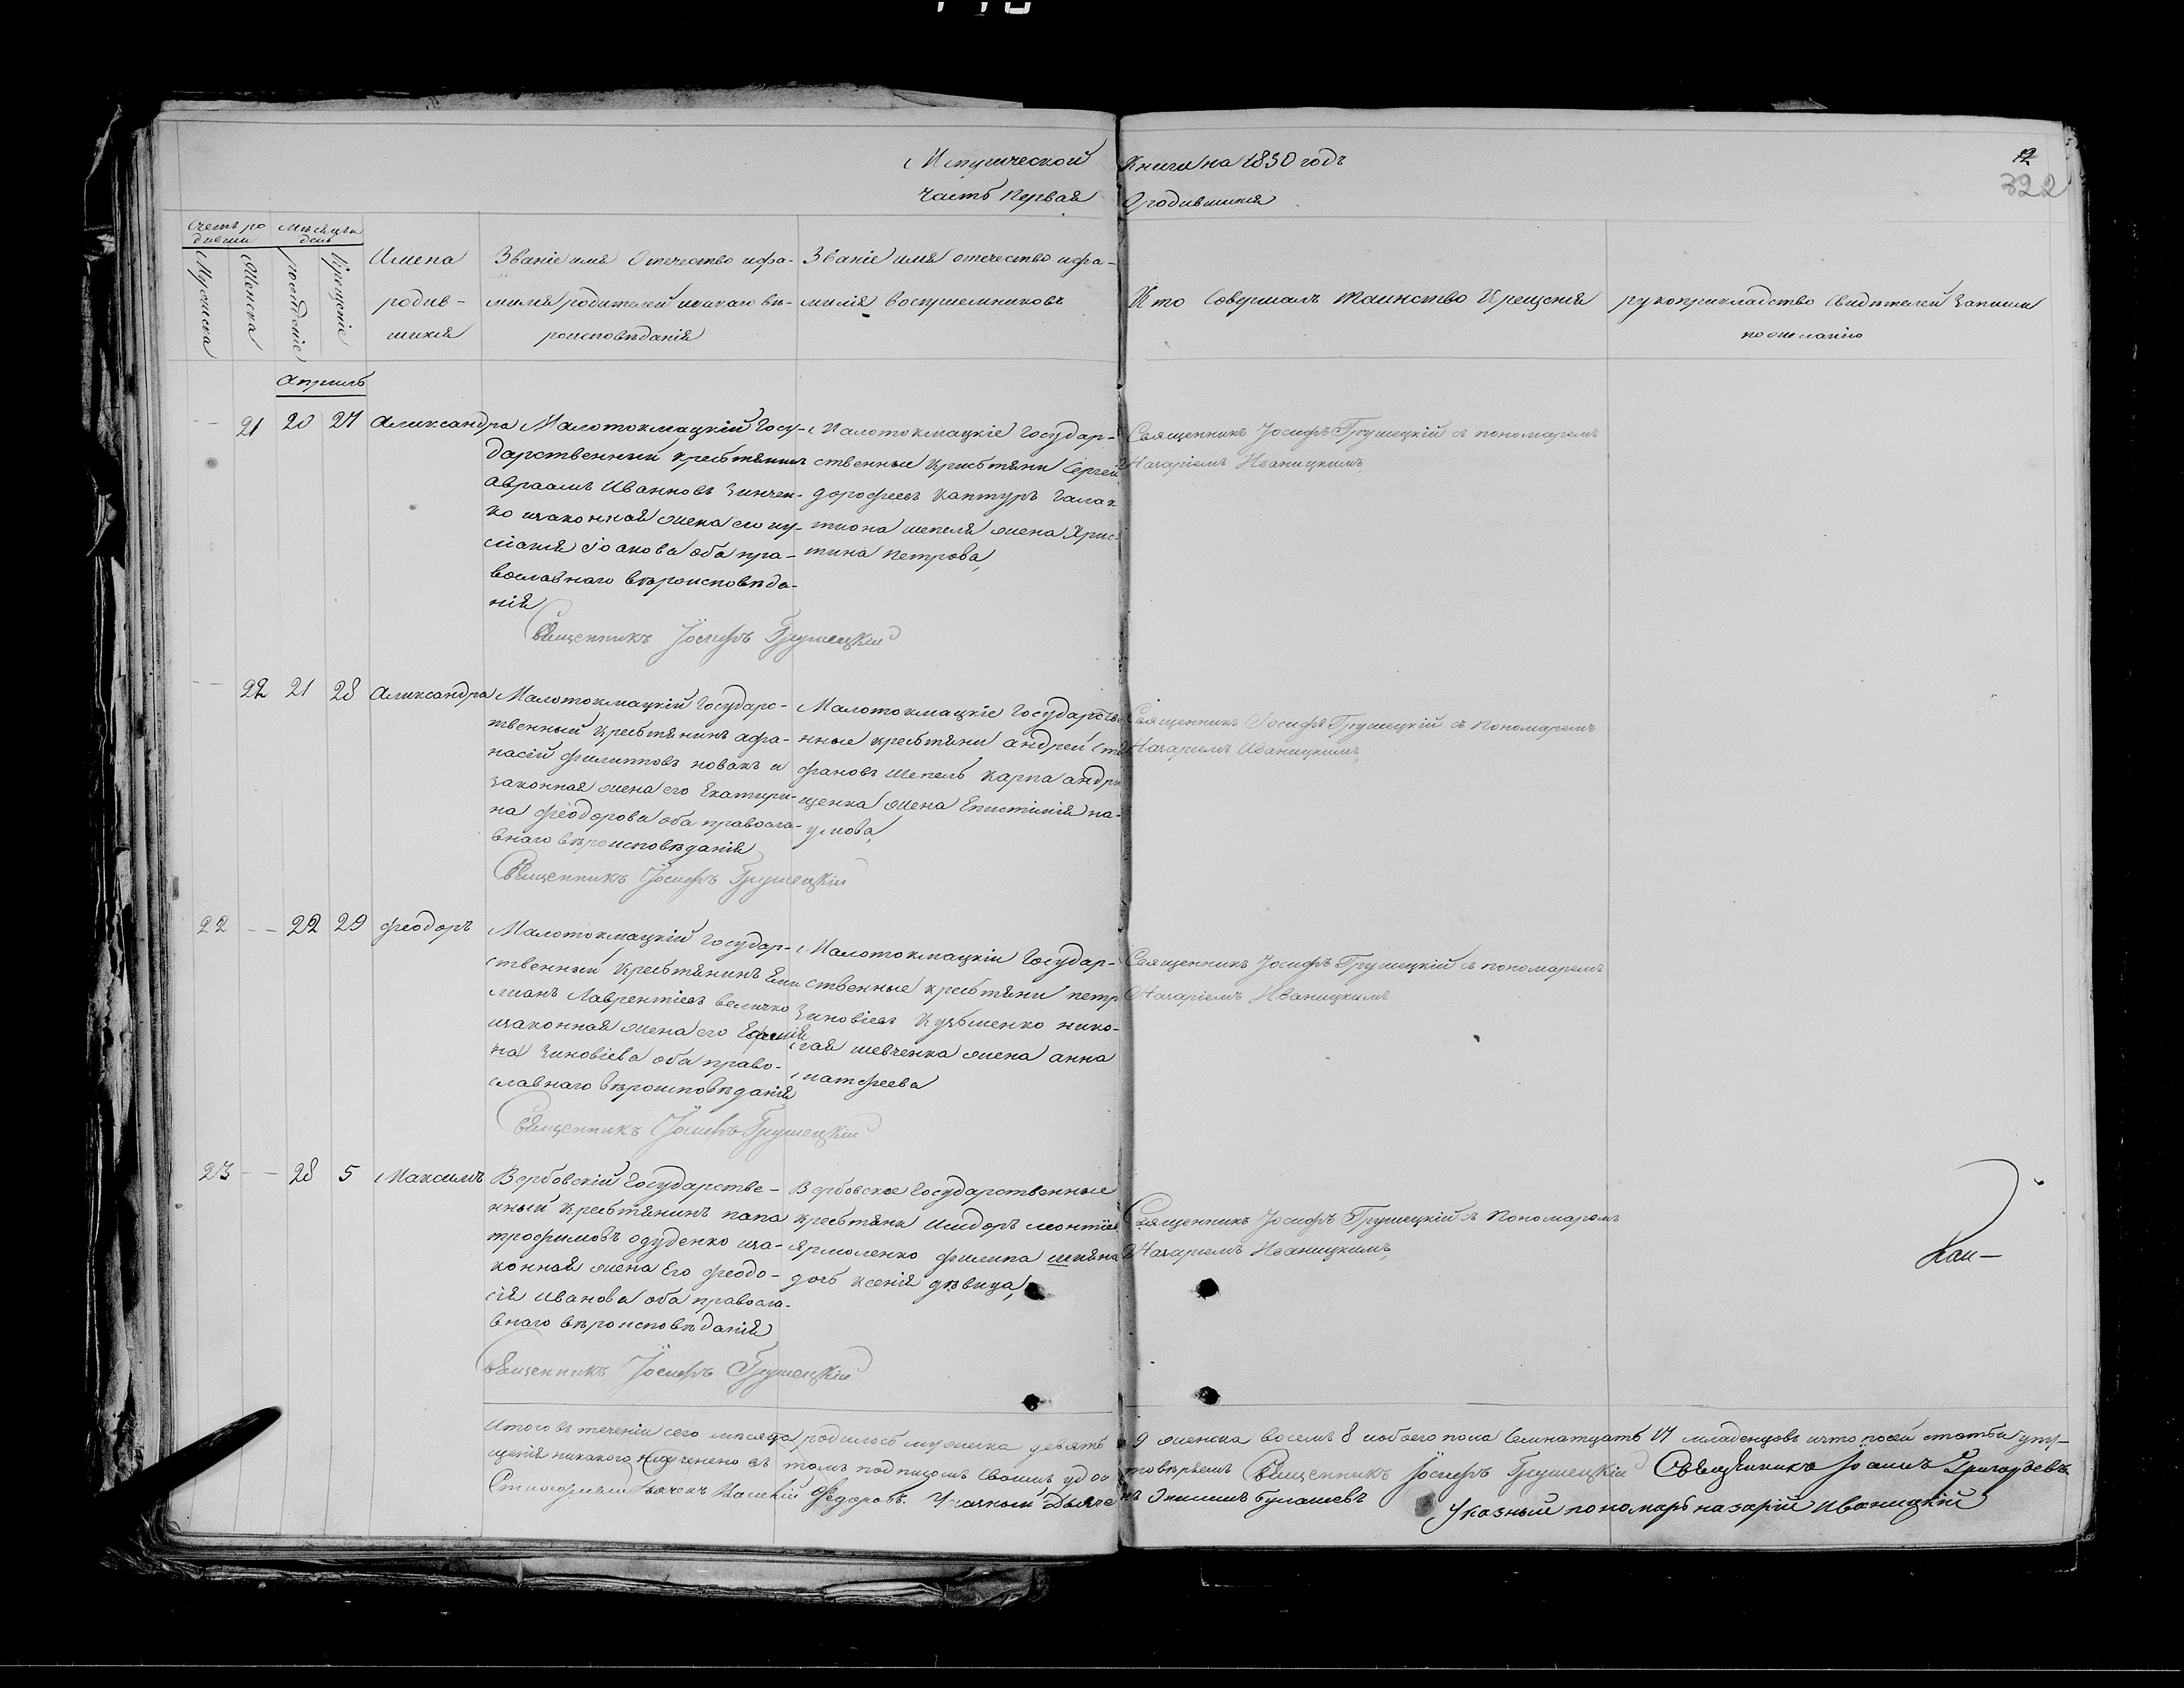 Метрической Книги на 1850 годъ
12
Часть Первая О родившихся
322
Счетъ ро
дившихся
Мѣсяцъ и
день
Мужеска
Женска
рожденіе
Крещеніе
Имена
родив-
шихся
Званіе имя Отечество и фа-
милія родителей и какого вѣ-
роисповѣданія
Званіе имя отечество и фа-
милія Воспріемниковъ
Кто Совершалъ таинство Крещенія
рукоприкладство свидѣтелей записи
по желанію
Апрѣль
— 21 20 27 Александра
Малотокмацкій Госу-
дарственный крестьянинъ
Авраамъ Ивановъ Зинчен-
ко и законная жена его
Іоанова оба пра-
вославнаго вѣроисповѣда-
нія
Священникъ Іосифъ Грушецкій
Малотокмацкіе Государ-
ственные крестьяни Сергей
дорофеевъ Кантуръ Галак-
тиона шепеля жена Хрис-
тина петрова,
Священникъ Іосифъ Грушецкій съ пономаремъ
Назаріемъ Иваницкимъ
— 22 21 28 Александра
Малотокмацкій Государс-
твенный Крестьянинъ афа-
насій филипповъ новакъ и
законная жена его Екатери-
на феодорова оба правосла-
внаго вѣроисповѣданія
Священникъ Іосифъ Грушецкій
Малотокмацкіе Государстве
нные крестьяни андрей Сте
фановъ Шепель Карпа андрю
щенка жена Епистимія на-
умова,
Священникъ Іосифъ Грушецкій съ пономаремъ
Назаріемъ Иваницкимъ
22 — 22 29 феодоръ
Малотокмацкій Государ-
ственный Крестьянинъ Еми
лианъ Лаврентіевъ величко
и законная жена его
Зиновіева оба право-
славнаго вѣроисповѣданія
Священникъ Іосифъ Грушецкій
Малотокмацкіи Государ-
ственные крестьяни петръ
Зиновіевъ Кузьменко нико-
лая шевченка жена анна
матфеева
Священникъ Іосифъ Грушецкій съ пономаремъ
Назаріемъ Иваницкимъ
23 — 28 5 Максимъ
Вербовскій Государстве-
нный Крестьянинъ
трофимовъ одуденко и за-
конная жена Его феодо-
сія Иванова оба правосла-
внаго вѣроисповѣданія
Священникъ Іосифъ Грушецкій
Вербовскіе Государственные
крестьяни Исидоръ леонтіев
Ярмоленко филипа
дочь Ксенія дѣвица,
Священникъ Іосифъ Грушецкій съ Пономаремъ
Назаріемъ Иваницкимъ
Итого въ теченіи сего мѣсяца родилось мужеска девять 9 женска восемь 8 и обоего пола Семнатцать 17 младенцовъ и что по сей статьи упу-
щенія никакого не учинено въ томъ подписомъ Своимъ удостовѣряемъ Священникъ Іосифъ Грушецкій Священникъ Іоаннъ Григорьевъ
Федоровъ. Указный Дьячекъ Булашевъ Указный пономарь назарій Иваницкій